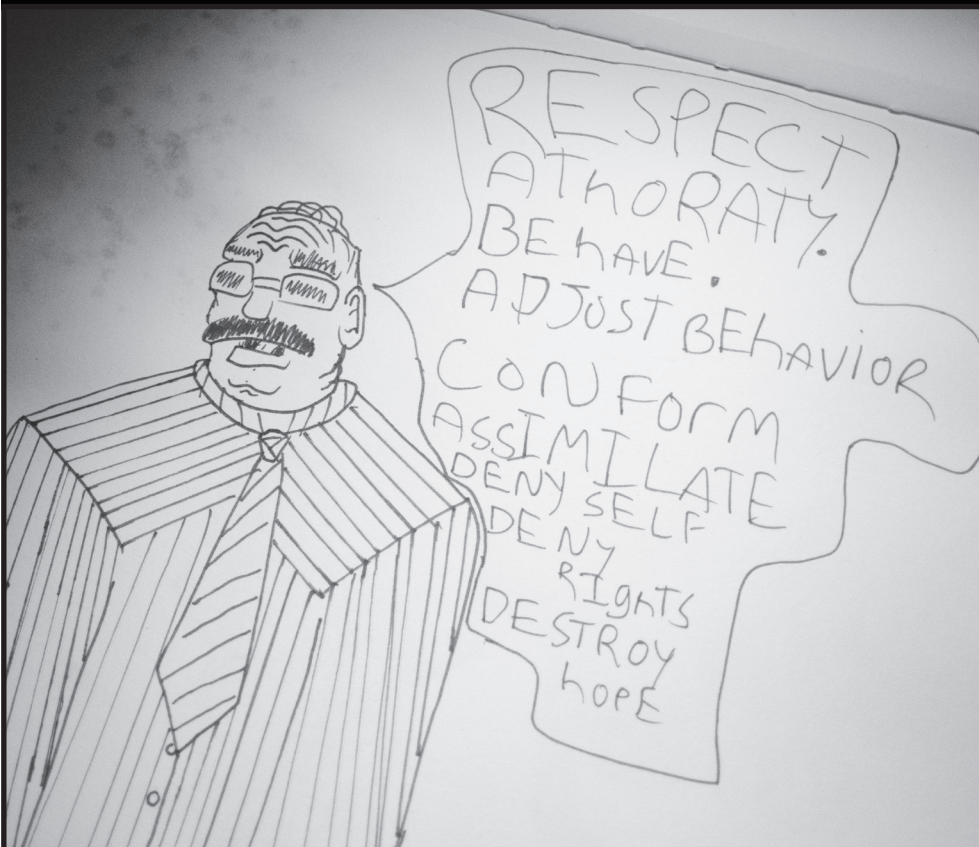 RESPECT
AThoRATY.
BEhAVE.
ADJUST BEhAVIOR
CoNFOrM
ASSIMILATE
DENY SELF
DENY
RIghTS
DESTROY
hoPE